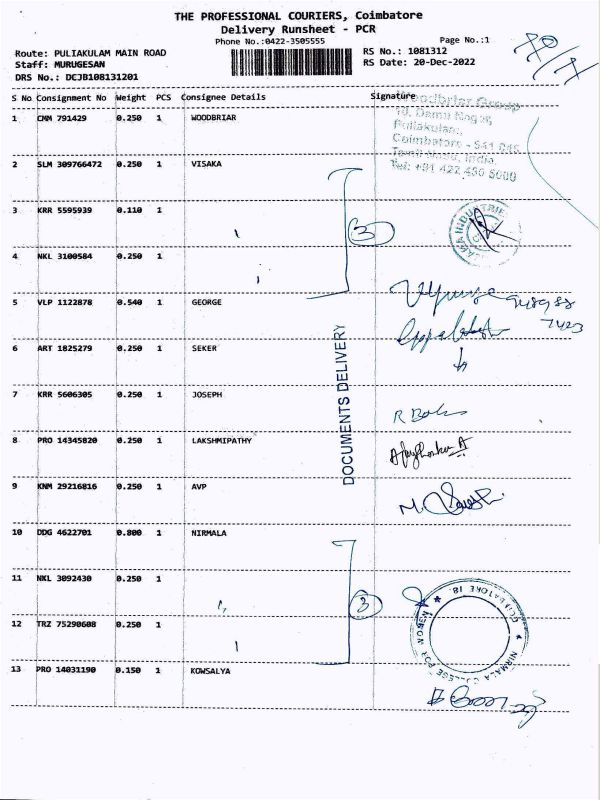 THE PROFESSIONAL COURIERS, Coimbatore
Delivery Runsheet - PCR
Phone No.:0422-3505555
Page No.:1
Route: PULIAKULAM MAIN ROAD
RS No.: 1081312
Staff: MURUGESAN
RS Date: 20-Dec-2022
DRS No.: DCJB108131201
S No Consignment No Weight PCS Consignee Details Signature
Woodbriar Group
1 CMM 791429 0.250 1 WOODBRIAR
Puliakulam,
Coimbatore - 641 045
Tamil Nadu, India.
2 SLM 309766472 0.250 1 VISAKA
Tel: +91 422 430 5000
3 KRR 5595939 0.110 1
3
4 NKL 3100584 0.250 1
5 VLP 1122878 0.540 1 GEORGE
6 ART 1825279 0.250 1 SEKER
7 KRR 5606305 0.250 1 JOSEPH
DOCUMENTS DELIVERY
8 PRO 14345820 0.250 1 LAKSHMIPATHY
9 KNM 29216816 0.250 1 AVP
10 DDG 4622701 0.800 1 NIRMALA
11 NKL 3092430 0.250 1
3
12 TRZ 75290608 0.250 1
NIRMALA COLLEGE FOR WOMEN
COIMBATORE 18.
13 PRO 14031190 0.150 1 KOWSALYA